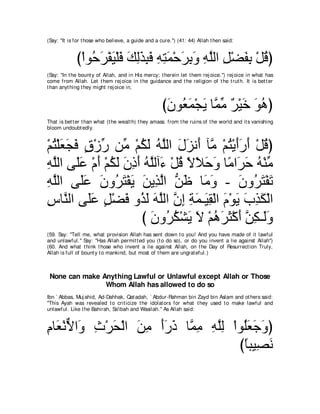 (Say: "It is for those who believe, a guide and a cure.'') (41: 44) Allah then said:
(قُلْ بِفَضْلِ اللَّهِ وَبِرَحْمَتِهِ فَبِذَلِكَ فَلْيَفْرَحُواْ)
(Say: "In the bounty of Allah, and in His mercy; therein let them rejoice.'') rejoice in what has
come from Allah. Let them rejoice in the guidance and the religion of the truth. It is better
than anything they might rejoice in,
(هُوَ خَيْرٌ مِّمَّا يَجْمَعُونَ)
That is better than what (the wealth) they amass. from the ruins of the world and its vanishing
bloom undoubtedly.
(قُلْ أَرَأَيْتُمْ مَّآ أَنزَلَ اللَّهُ لَكُمْ مِّن رِّزْقٍ فَجَعَلْتُمْ
مِّنْهُ حَرَامًا وَحَلاَلاً قُلْ ءَآللَّهُ أَذِنَ لَكُمْ أَمْ عَلَى اللَّهِ
تَفْتَرُونَ - وَمَا ظَنُّ الَّذِينَ يَفْتَرُونَ عَلَى اللَّهِ
الْكَذِبَ يَوْمَ الْقِيَـمَةِ إِنَّ اللَّهَ لَذُو فَضْلٍ عَلَى النَّاسِ
وَلَـكِنَّ أَكْثَرَهُمْ لاَ يَشْكُرُونَ )
(59. Say: "Tell me, what provision Allah has sent down to you! And you have made of it lawful
and unlawful.'' Say: "Has Allah permitted you (to do so), or do you invent a lie against Allah'')
(60. And what think those who invent a lie against Allah, on the Day of Resurrection Truly,
Allah is full of bounty to mankind, but most of them are ungrateful.)
None can make Anything Lawful or Unlawful except Allah or Those
Whom Allah has allowed to do so
Ibn `Abbas, Mujahid, Ad-Dahhak, Qatadah, `Abdur-Rahman bin Zayd bin Aslam and others said:
"This Ayah was revealed to criticize the idolators for what they used to make lawful and
unlawful. Like the Bahirah, Sa'ibah and Wasilah.'' As Allah said:
(وَجَعَلُواْ لِلَّهِ مِمَّا ذَرَأَ مِنَ الْحَرْثِ وَالاٌّنْعَامِ
نَصِيباً)